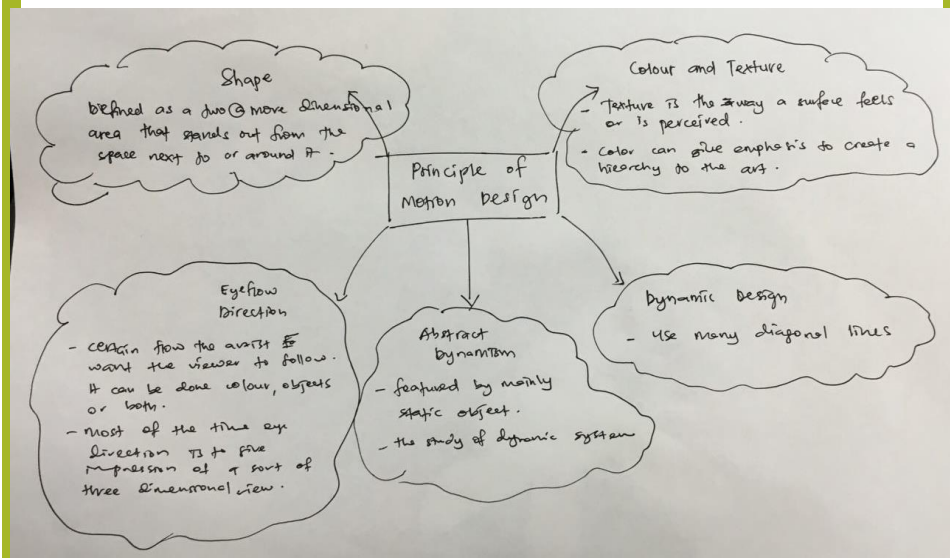 Shape
Defined as a two or more dimensional
area that stands out from the
space next to or around it.
Colour and Texture
- Texture is the way a surface feels
or is perceived.
- Color can give emphasis to create a
hierarchy to the art.
Principle of
Motion Design
Eyeflow
Direction
- certain flow the artist
want the viewer to follow.
It can be done colour, objects
or both.
- most of the time eye
direction is to give
impression of a sort of
three dimensional view.
Abstract
Dynamism
- featured by mainly
static object.
- the study of dynamic system
Dynamic Design
- use many diagonal lines